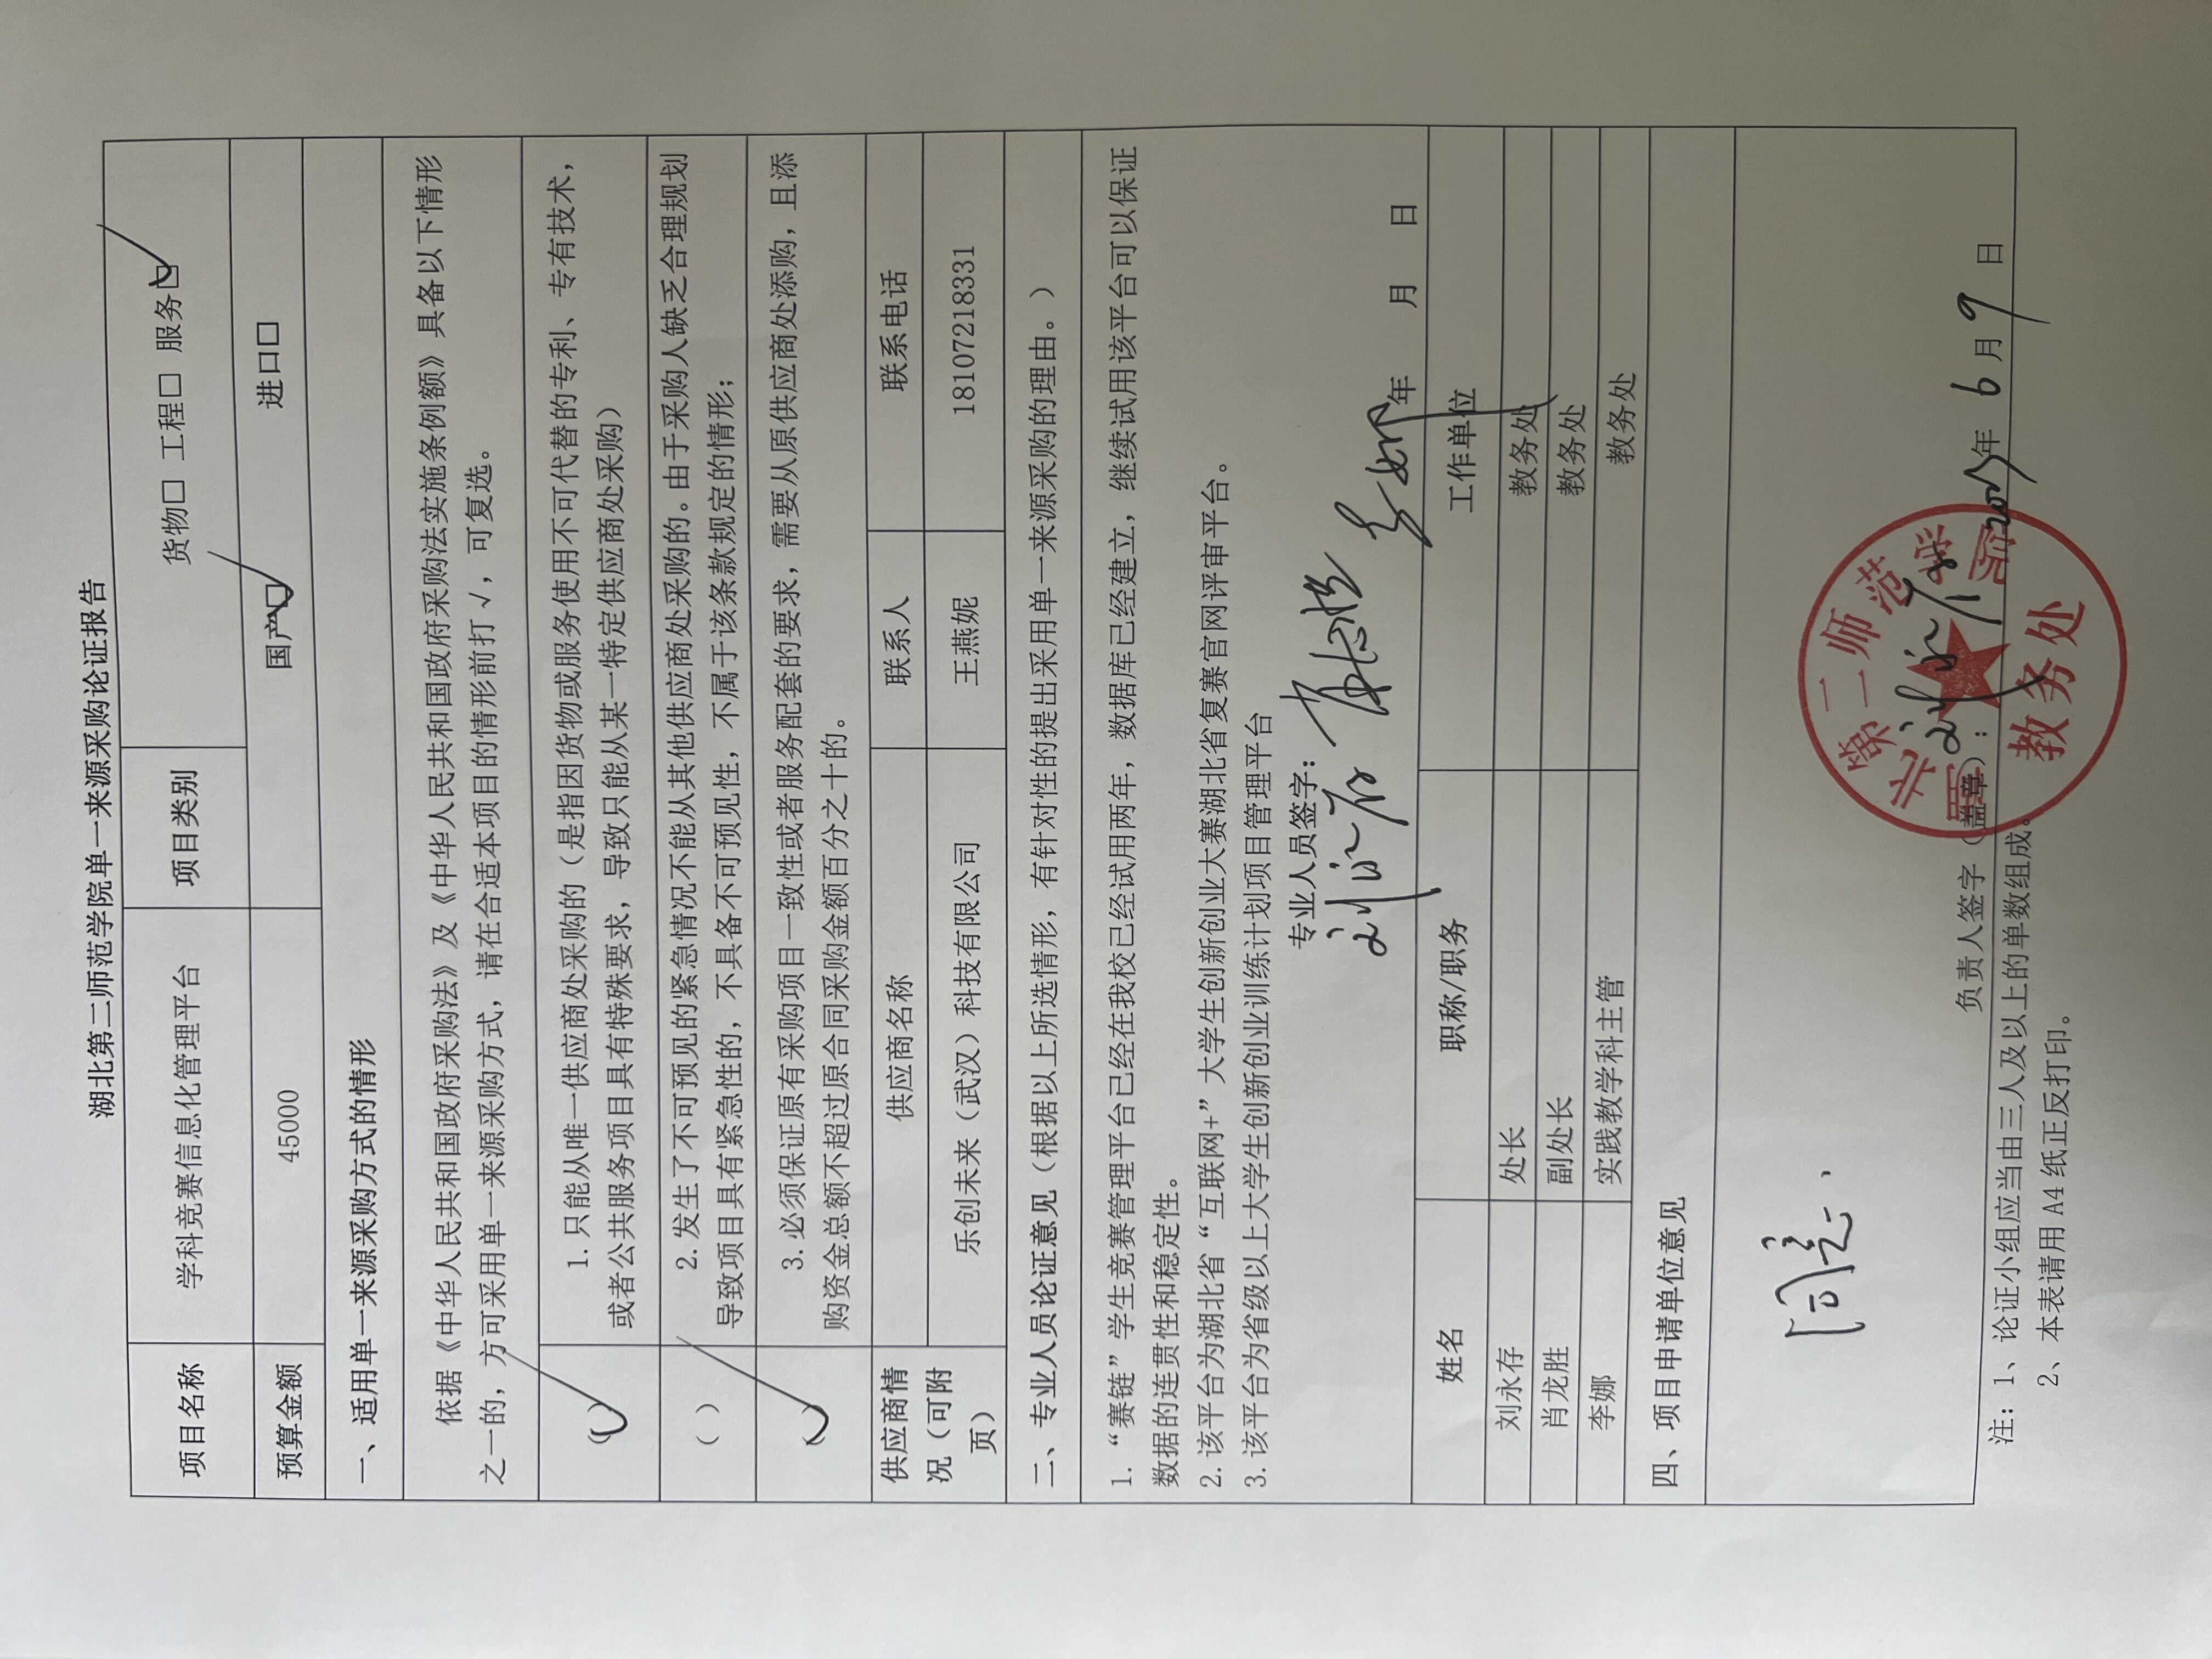 湖北第二师范学院单一来源采购论证报告
项目名称 学科竞赛信息化管理平台 项目类别 货物□ 工程□ 服务☑
预算金额 45000 国产☑ 进口□
一、适用单一来源采购方式的情形
依据《中华人民共和国政府采购法》及《中华人民共和国政府采购法实施条例额》具备以下情形
之一的，方可采用单一来源采购方式，请在合适本项目的情形前打√，可复选。
(√) 1.只能从唯一供应商处采购的（是指因货物或服务使用不可代替的专利、专有技术，
或者公共服务项目具有特殊要求，导致只能从某一特定供应商处采购）
( ) 2.发生了不可预见的紧急情况不能从其他供应商处采购的。由于采购人缺乏合理规划
导致项目具有紧急性的，不具备不可预见性，不属于该条款规定的情形；
(√) 3.必须保证原有采购项目一致性或者服务配套的要求，需要从原供应商处添购，且添
购资金总额不超过原合同采购金额百分之十的。
供应商情 供应商名称 联系人 联系电话
况（可附
页） 乐创未来（武汉）科技有限公司 王燕妮 18107218331
二、专业人员论证意见（根据以上所选情形，有针对性的提出采用单一来源采购的理由。）
1.“赛链”学生竞赛管理平台已经在我校已经试用两年，数据库已经建立，继续试用该平台可以保证
数据的连贯性和稳定性。
2.该平台为湖北省“互联网+”大学生创新创业大赛湖北省复赛官网评审平台。
3.该平台为省级以上大学生创新创业训练计划项目管理平台
专业人员签字：
刘永存 肖龙胜 李娜 年 月 日
姓名 职称/职务 工作单位
刘永存 处长 教务处
肖龙胜 副处长 教务处
李娜 实践教学科主管 教务处
四、项目申请单位意见
同意.
负责人签字（盖章）： 刘永存 2023年 6 月 9 日
湖北第二师范学院
教务处
注：1、论证小组应当由三人及以上的单数组成。
2、本表请用 A4 纸正反打印。